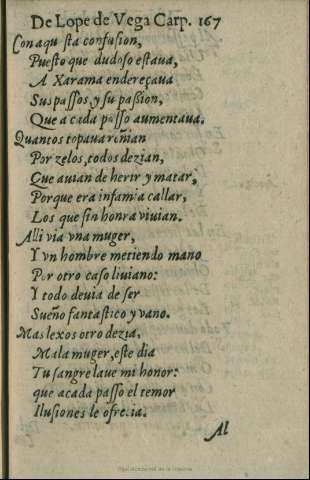 De Lope de Vega Carp. 167
Con aqu sta confusion,
Puesto que dudoso estaua,
A Xarama endereçaua
Sus passos, y su passion,
Que a cada passo aumentaua.
Quantos topaua reñian
Por zelos, todos dezian,
Que auian de herir y matar,
Porque era infamia callar,
Los que sin honra viuian.
Alli via vna muger,
Y vn hombre metiendo mano
Por otro caso liuiano:
Y todo deuia de ser
Sueño fantastico y vano.
Mas lexos otro dezia,
Mala muger, este dia
Tu sangre laue mi honor:
que acada passo el temor
Ilusiones le ofrecia.
Al